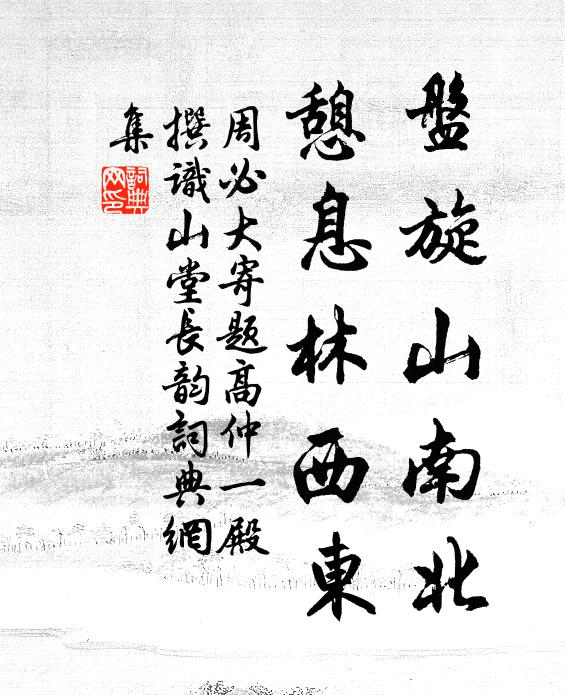 盤旋山南北
憩息林西東
周必大寄題高仲一殿
撰識山堂長韵詞典網
集
詞典
网印